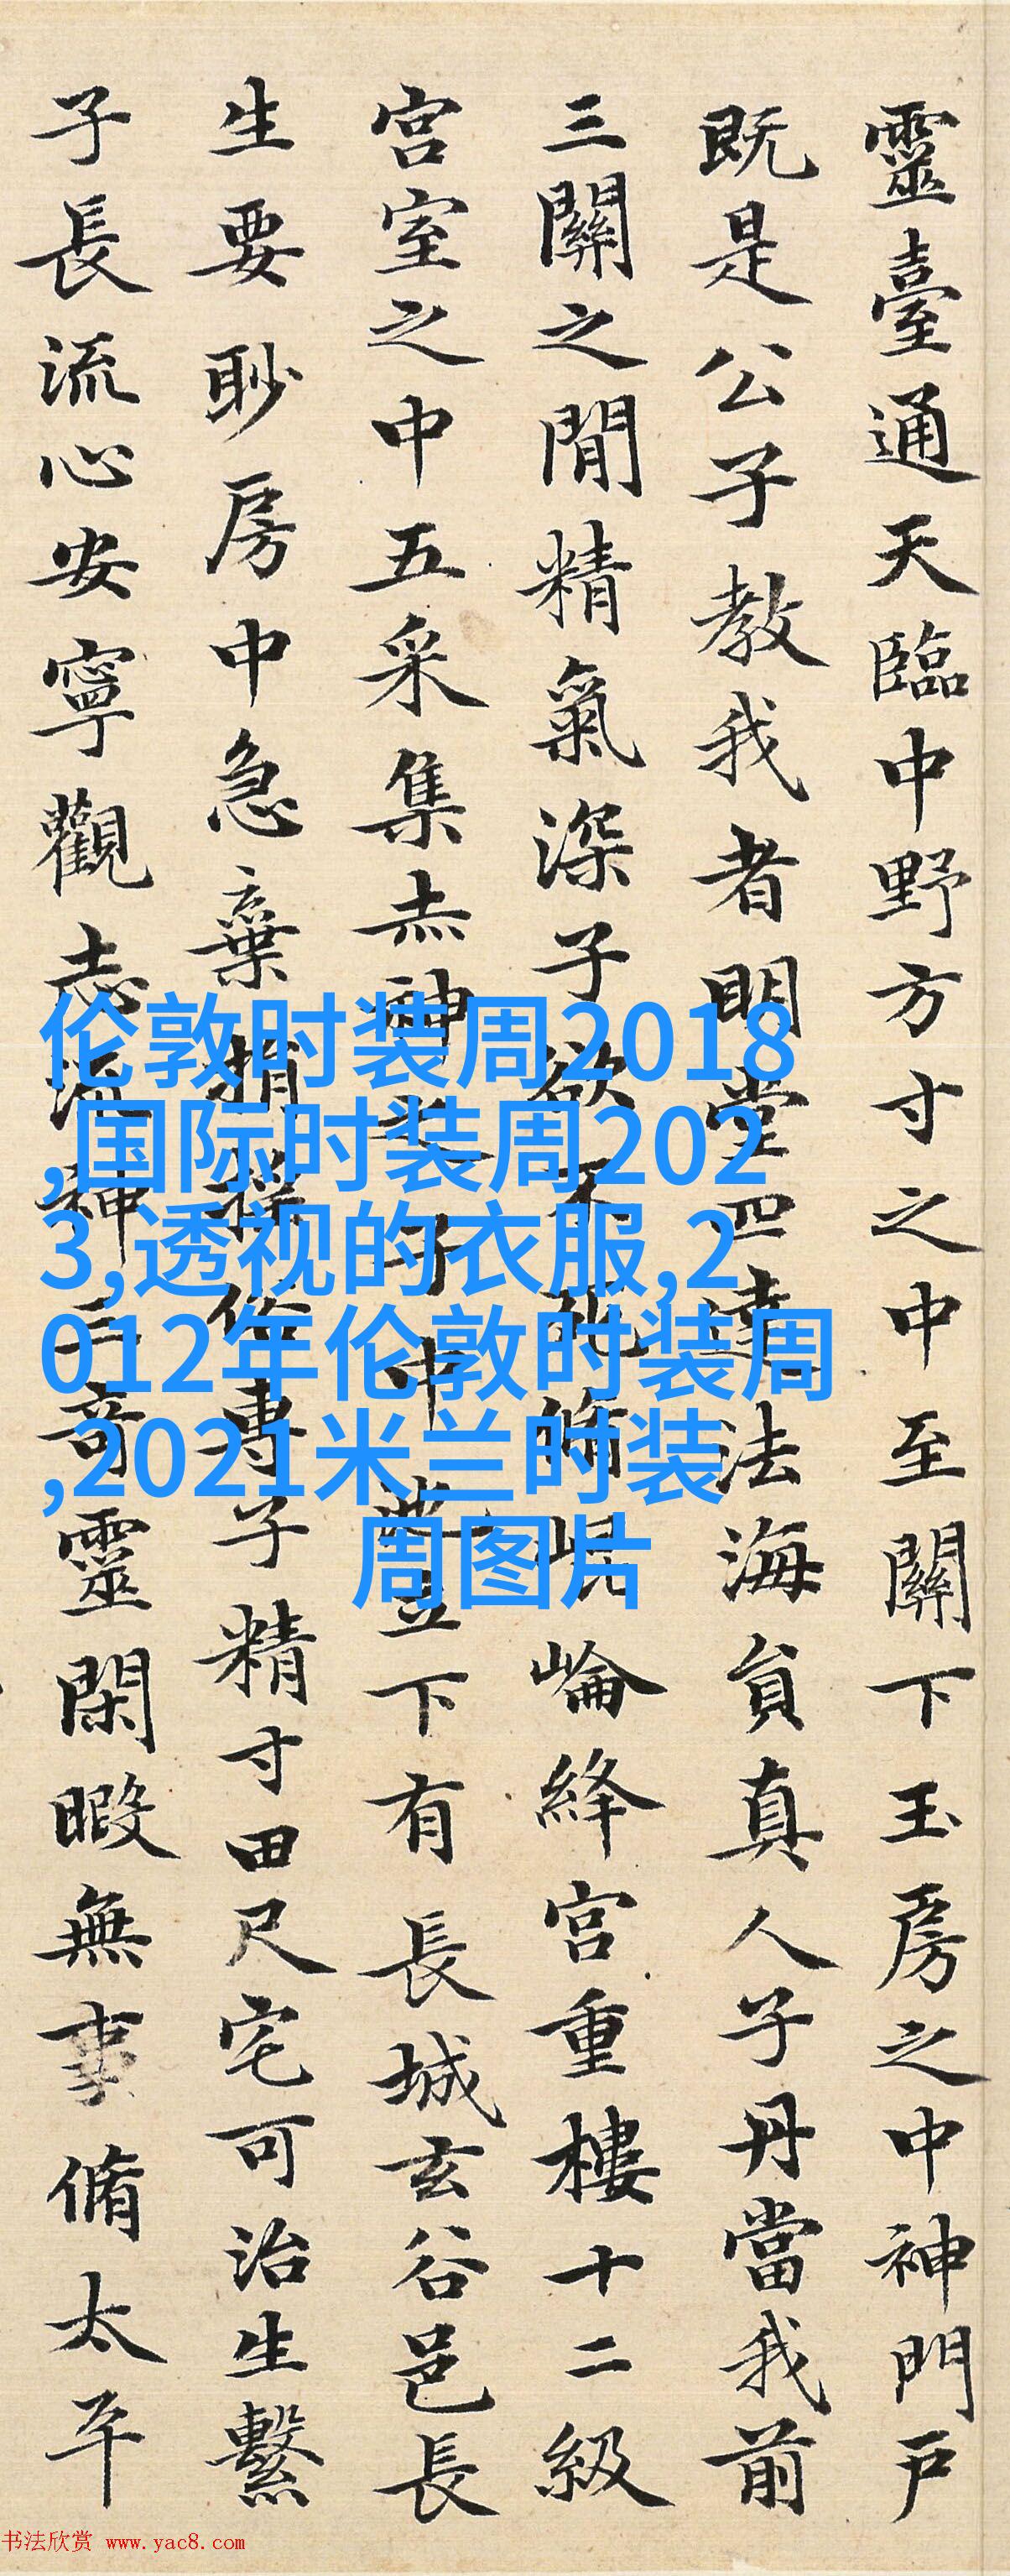 靈臺通天臨中野方寸之中至關下玉房之中神門戶
既是公子教我者明堂四達法海員真人子丹當我前
三關之閒精氣深子欲不死脩崐崘絳宮重樓十二級
宮室之中五采集赤神之子中池立下有長城玄谷邑長
生要眇房中急棄捐搖俗專子精寸田尺宅可治生繫
子長流心安寧觀志流神三奇靈閑暇無事脩太平
伦敦时装周2018
,国际时装周202
3,透视的衣服,2
012年伦敦时装周
,2021米兰时装
周图片
书法欣赏 www.yac8.com